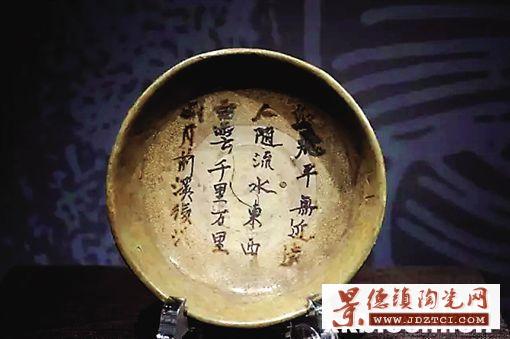 飛平無近遠
人隨流水東西
雲千里万里
月前溪後
景德镇陶瓷网
WWW.JDZTCI.COM